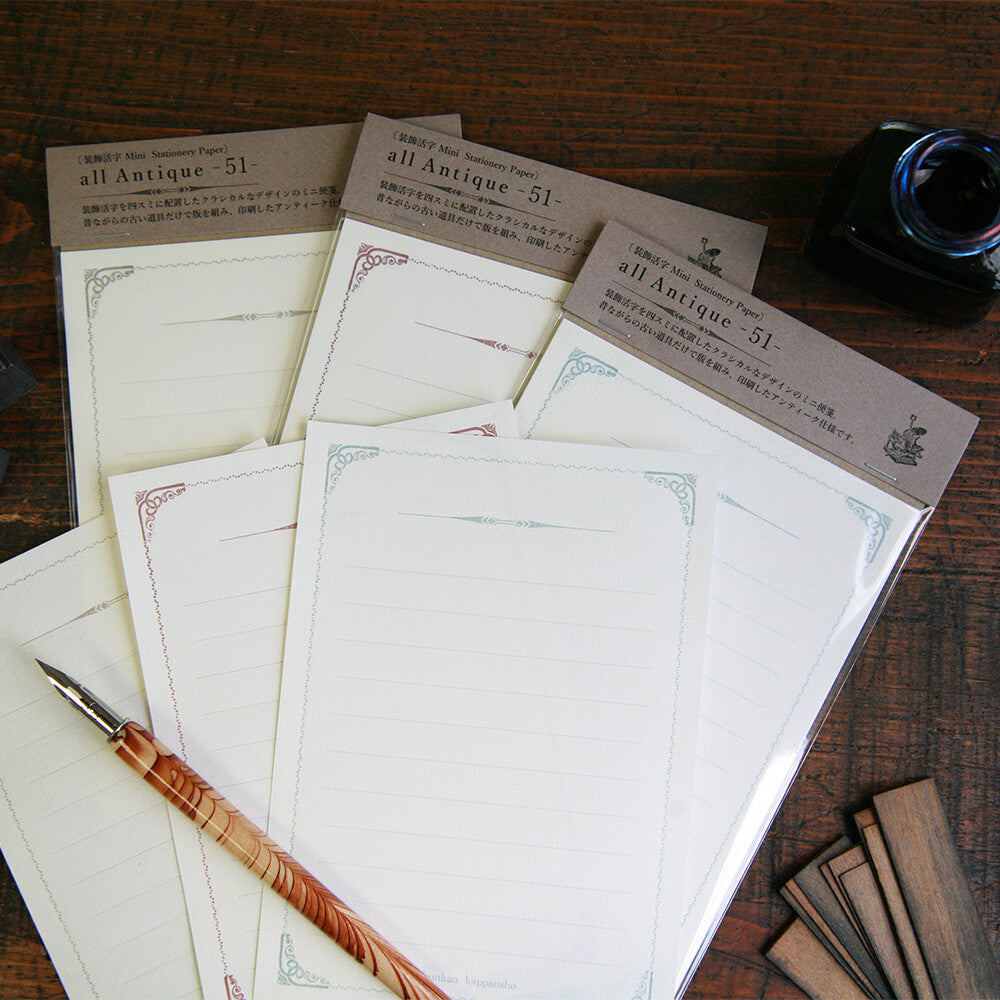 〔装飾活字 Mini Stationery Paper〕
all Antique -51-
装飾活字を四スミに配置したクラシカルなデザインのミニ便箋。
昔ながらの古い道具だけで版を組み、印刷したアンティーク仕
〔装飾活字 Mini Stationery Paper〕
all Antique -51-
装飾活字を四スミに配置したクラシカルなデザインの
昔ながらの古い道具だけで版を組み、印刷したアンティ
〔装飾活字 Mini Stationery Paper〕
all Antique -51-
装飾活字を四スミに配置したクラシカルなデザインのミニ便箋。
昔ながらの古い道具だけで版を組み、印刷したアンティーク仕様です。
kappansho